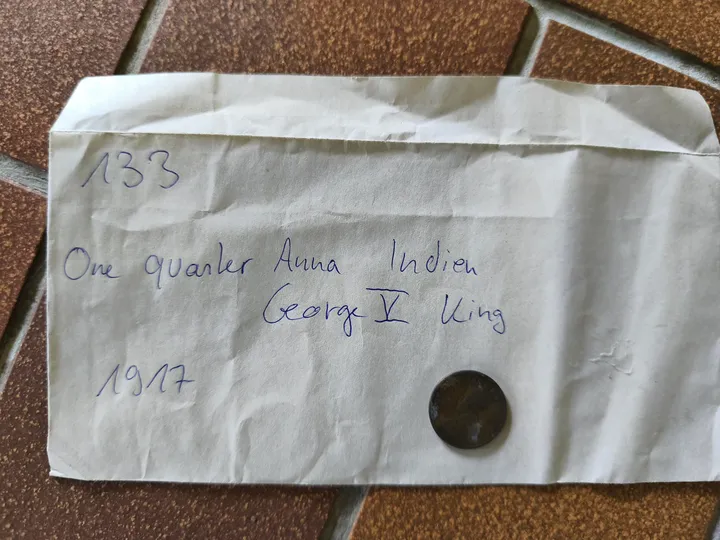 133
One quarter Anna Indien
George V King
1917